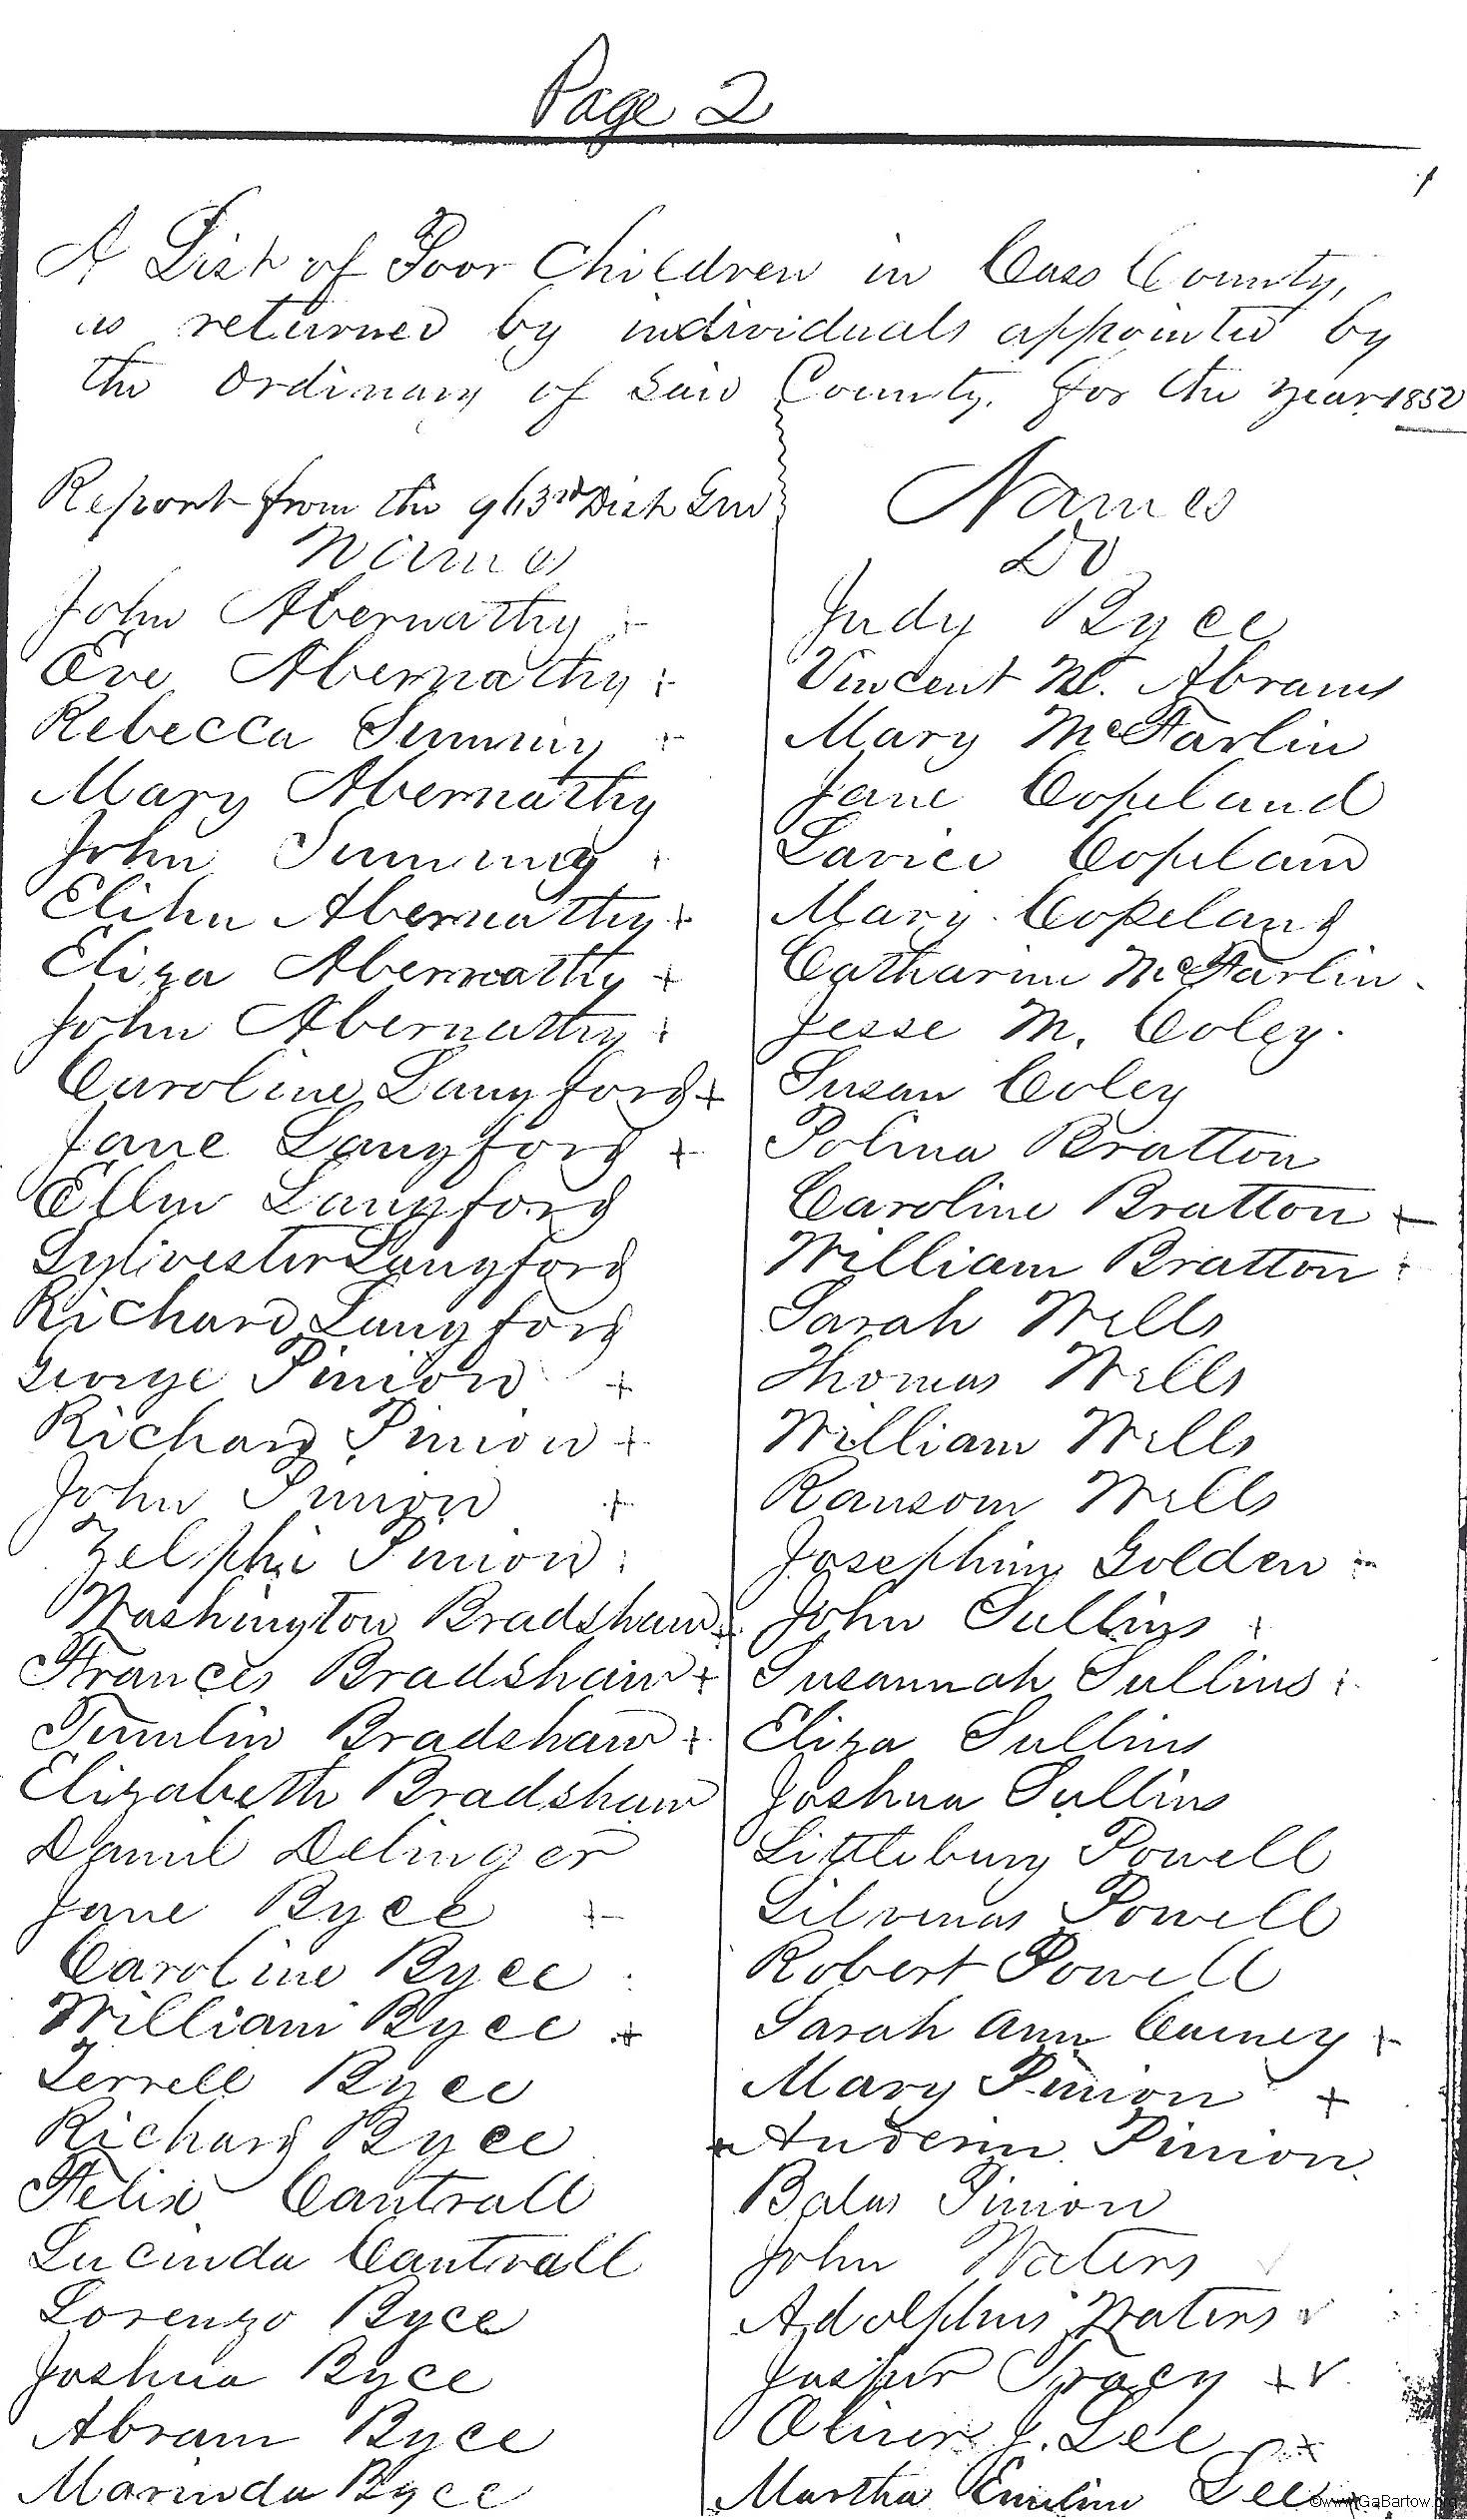 Page 2
1
A List of Poor Children in Cass County,
as returned by individuals appointed by
the Ordinary of said County. for the year 1852
Report from the 963rd Dist Gm
Names
John Abernathy +
Eve Abernathy +
Rebecca Summy +
Mary Abernathy
John Summy +
Elihu Abernathy +
Eliza Abernathy +
John Abernathy +
Caroline Langford +
Jane Langford +
Ellen Langford
Sylivester Langford
Richard Langford
George Pinion +
Richard Pinion +
John Pinion +
Zelphi Pinion
Washington Bradshaw +
Frances Bradshaw +
Tumlin Bradshaw +
Elizabeth Bradshaw
Daniel Delinger
Jane Byce +
Caroline Byce
William Byce +
Terrell Byce
Richard Byce
Felix Cantrall
Lucinda Cantrall
Lorenzo Byce
Joshua Byce
Abram Byce
Marinda Byce
Names
Do
Judy Byce
Vincent M. Abrams
Mary McFarlin
Jane Copeland
Copeland
Mary Copeland
Catharine McFarlin
Jesse M. Coley
Susan Coley
Polina Bratton
Caroline Bratton +
William Bratton +
Sarah Wells
Thomas Wells
William Wells
Ransom Wells
Josephine Golden +
John Sullins +
Susannah Sullins +
Eliza Sullins
Joshua Sullins
Littlebury Powell
Silvenas Powell
Robert Powell
Sarah Ann +
Mary Pinion +
Pinion
Balus Pinion
John Waters ✓
Adolphus Waters ✓
Jasper Tracy + ✓
Oliver J. Lee +
Martha Emiline Lee
©www.GaBartow.org